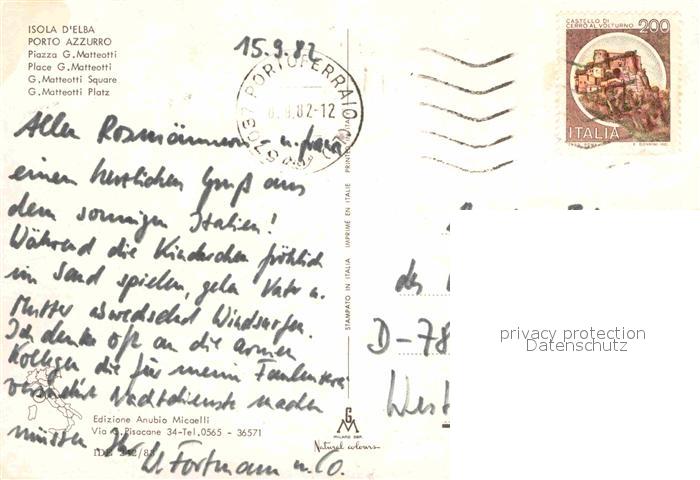 ISOLA D'ELBA
PORTO AZZURRO
Piazza G. Matteotti
Place G. Matteotti
G. Matteotti Square
G. Matteotti Platz
15.9.82
57037 PORTOFERRAIO
.9.82-12
CASTELLO DI
CERRO AL VOLTURNO 200
ITALIA
Allen Rosmännern u.
einen herzlichen Gruß aus
dem sonnigen Italien!
Während die Kinderchen fröhlich
im Sand spielen, gehn Vater u.
Mutter abwechselnd Windsurfen.
Ich denke oft an die armen
Kollegen die für meine
Nachtdienste machen
müssen Ihr
W. Fortmann u. Co.
STAMPATO IN ITALIA IMPRIMÉ EN ITALIE PRINTED IN ITALY
des
D-78
West
privacy protection
Datenschutz
Edizione Anubio Micaelli
Via G. Pisacane 34-Tel. 0565 - 36571
MILANO
Natural colours